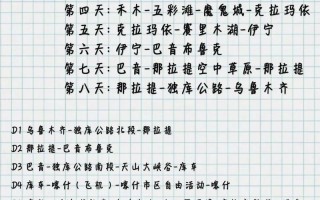 第四天：禾木-五彩滩-魔鬼城-克拉玛依
第五天：克拉玛依-赛里木湖-伊宁
第六天：伊宁-巴音布鲁克
第七天：巴音-那拉提空中草原-那拉提
第八天：那拉提-独库公路-乌鲁木齐
D1 乌鲁木齐-独库公路北段-那拉提
D2 那拉提-巴音布鲁克
D3 巴音-独库公路南段-天山大峡谷-库车
D4 库车-喀什（飞机）-喀什市区自由活动-喀什